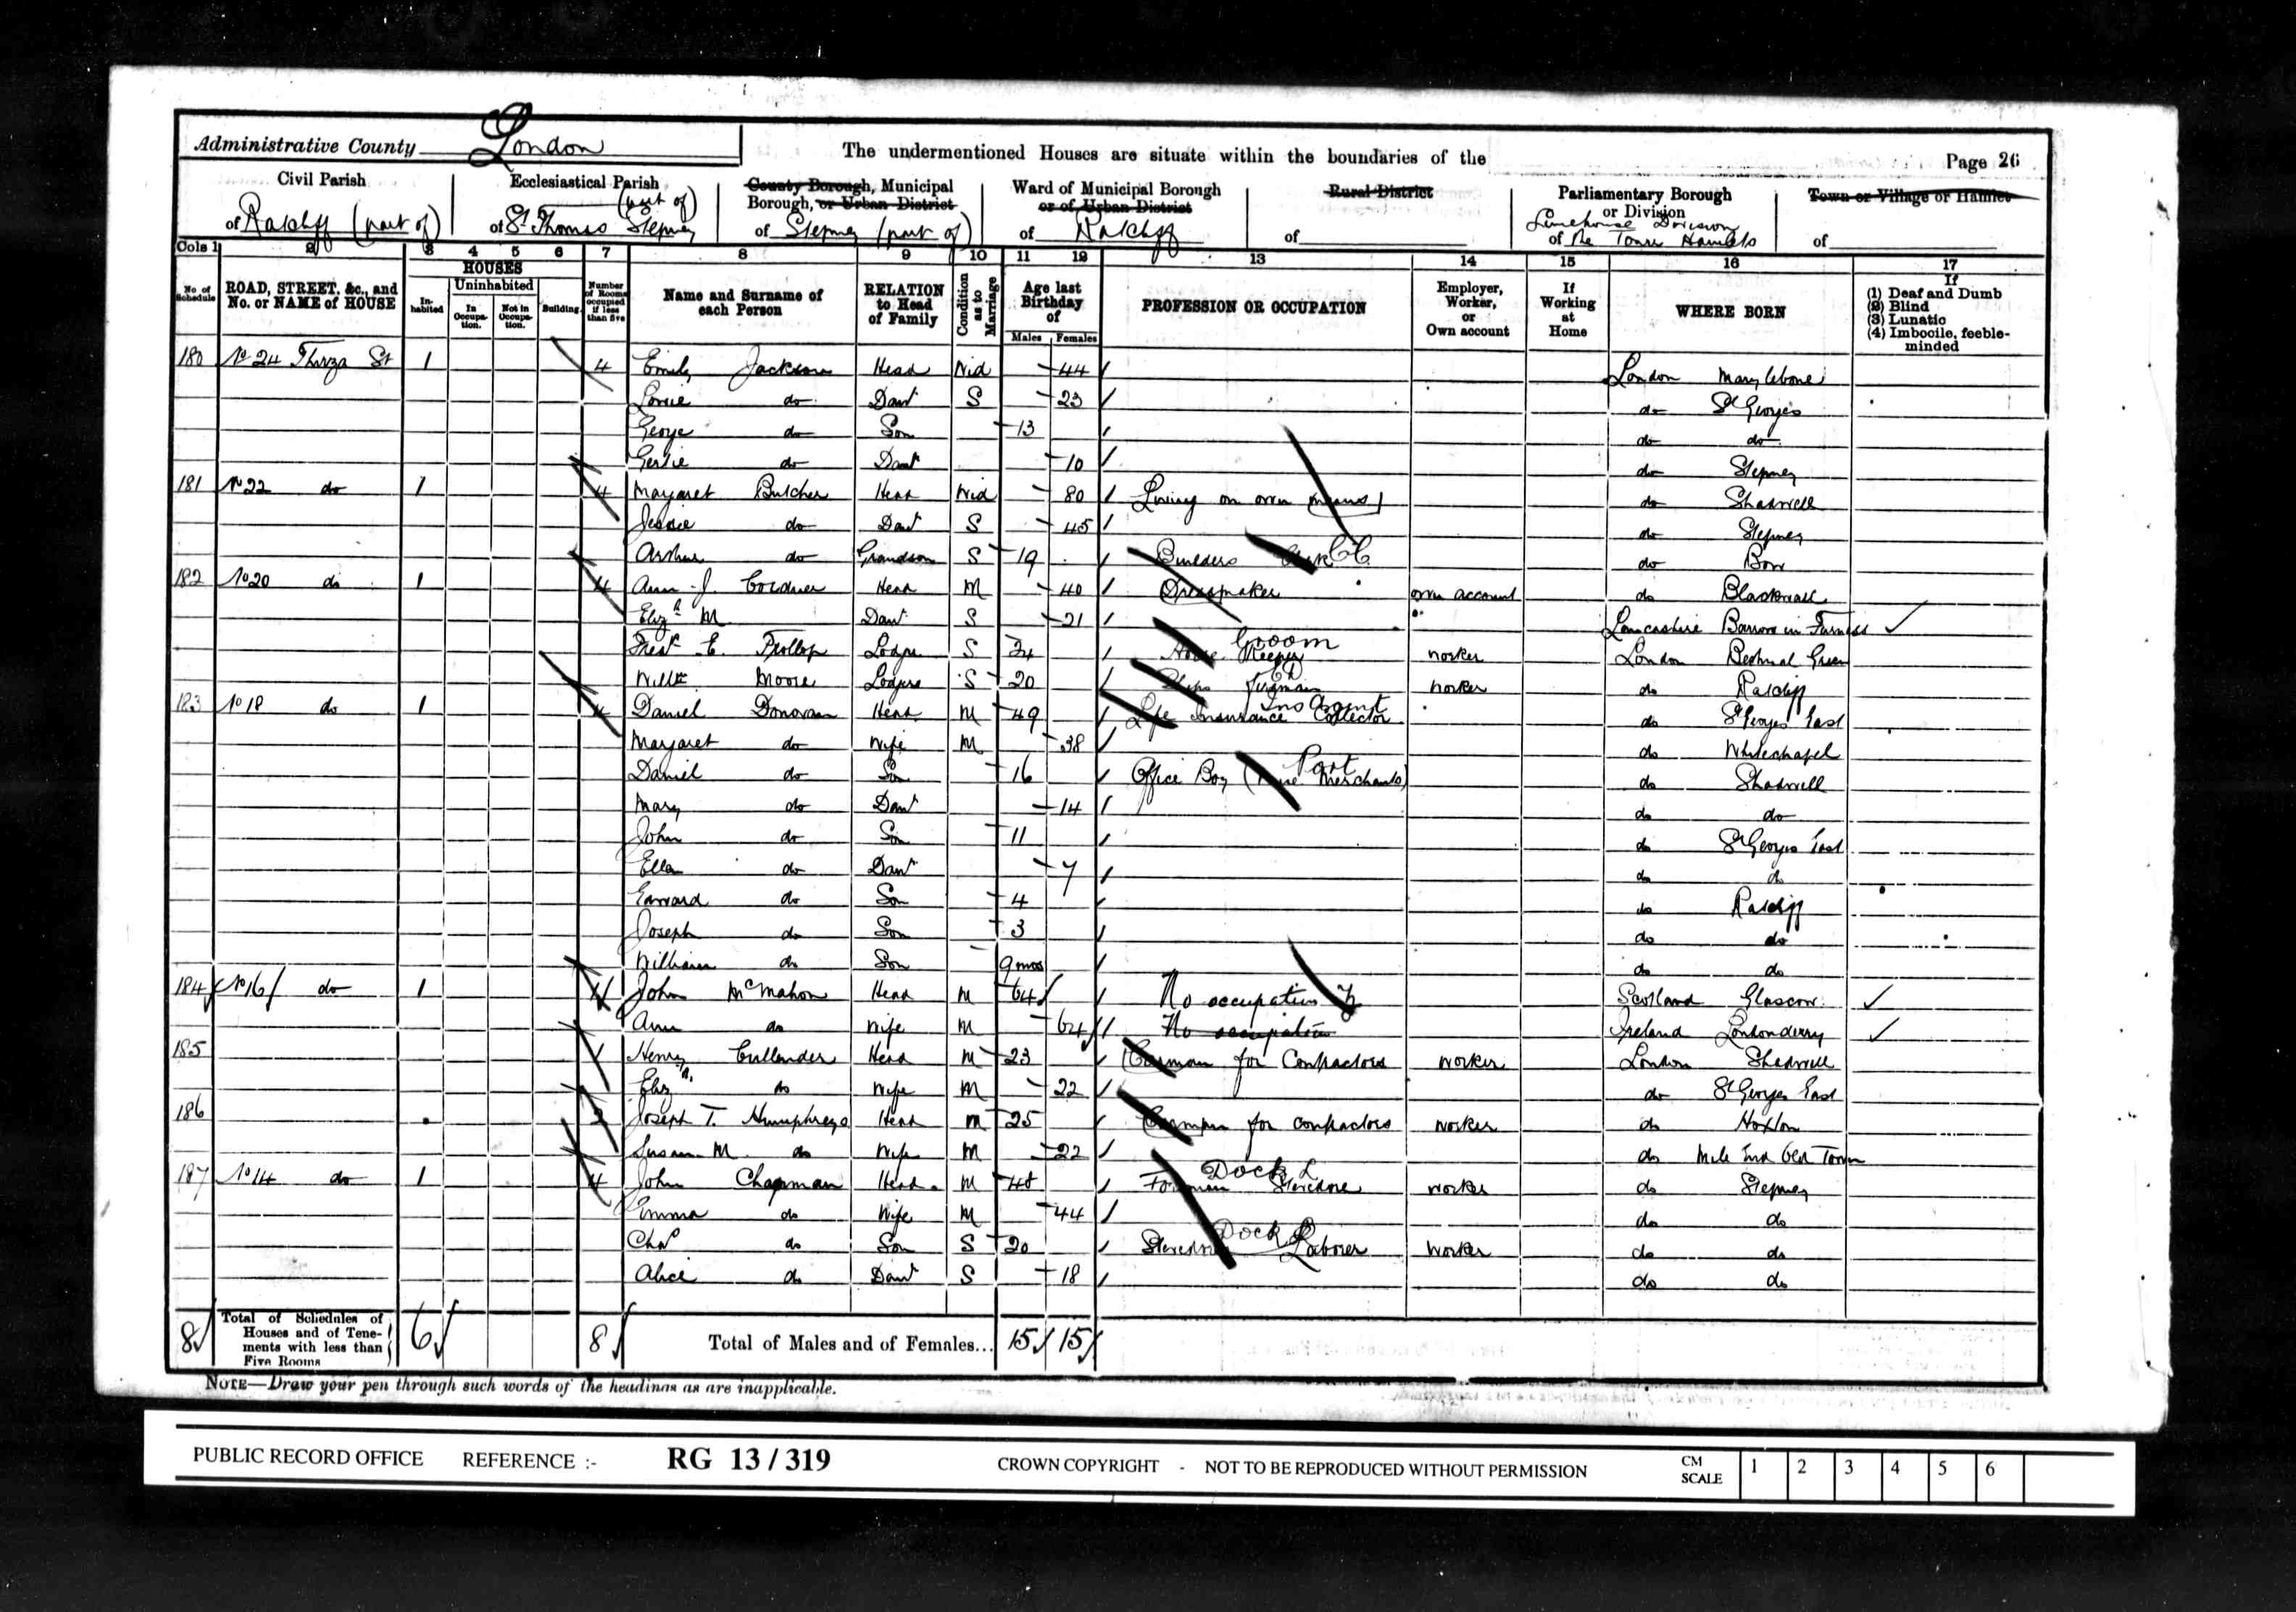 Administrative County London
The undermentioned Houses are situate within the boundaries of the
Page 26
Civil Parish
of Ratcliff (part of)
Ecclesiastical Parish
(part of)
of St Thomas Stepney
County Borough, Municipal
Borough, or Urban District
of Stepney (part of)
Ward of Municipal Borough
or of Urban District
of Ratcliff
Rural District
of
Parliamentary Borough
or Division
Limehouse Division
of the Tower Hamlets
Town or Village or Hamlet
of
Cols 1 2 3 4 5 6 7 8 9 10 11 12 13 14 15 16 17
No. of Schedule
ROAD, STREET, &c., and No. or NAME of HOUSE
HOUSES
In-habited
Uninhabited
In Occupa-tion.
Not in Occupa-tion.
Building
Number of Rooms occupied if less than five
Name and Surname of each Person
RELATION to Head of Family
Condition as to Marriage
Age last Birthday of
Males Females
PROFESSION OR OCCUPATION
Employer, Worker, or Own account
If Working at Home
WHERE BORN
If
(1) Deaf and Dumb
(2) Blind
(3) Lunatic
(4) Imbecile, feeble-minded
180 No 24 Thirza St 1 4 Emily Jackson Head Wid 44 London Marylebone
do Daur S 23 do St Georges
George do Son 13 do do
Gertie do Daur 10 do Stepney
181 No 22 do 1 4 Margaret Butcher Head Wid 80 Living on own means do Shadwell
Jessie do Daur S 45 do Stepney
Arthur do Grandson S 19 Builders Clerk CC do Bow
182 No 20 do 1 4 Ann J. Head M 40 Dressmaker own account do Blackwall
Elizh M Daur S 21 Lancashire Barrow in Furness
Fredk E. Trollop Lodger S 34 Groom
House Keeper worker London Bethnal Green
Willm Moore Lodger S 20 Ships Fireman worker do Ratcliff
Ins Agent
183 No 18 do 1 4 Daniel Donovan Head M 49 Life Insurance Collector do St Georges East
Margaret do Wife M 38 do Whitechapel
Port
Daniel do Son 16 Office Boy (Wine Merchants) do Shadwell
Mary do Daur 14 do do
John do Son 11 do St Georges East
Ella do Daur 7 do do
Edward do Son 4 do Ratcliff
Joseph do Son 3 do do
William do Son 9 mos do do
184 No 16 do 1 4 John McMahon Head M 64 No occupation Scotland Glascow
Ann do Wife M 64 No occupation Ireland Londonderry
185 1 Henry Cullender Head M 23 Carman for Contractors worker London Shadwell
Elizh do Wife M 22 do St Georges East
186 2 Joseph T. Humphreys Head M 25 Carman for contractors worker do Hoxton
Susan M. do Wife M 22 do Mile End Old Town
Dock L
187 No 14 do 1 4 John Chapman Head M 48 Foreman Stevedore worker do Stepney
Emma do Wife M 44 do do
Dock
Chas do Son S 20 Stevedore Laborer worker do do
Alice do Daur S 18 do do
8 Total of Schedules of Houses and of Tene-ments with less than Five Rooms 6 8 Total of Males and of Females... 15 15
NOTE—Draw your pen through such words of the headings as are inapplicable.
PUBLIC RECORD OFFICE REFERENCE :- RG 13 / 319 CROWN COPYRIGHT - NOT TO BE REPRODUCED WITHOUT PERMISSION CM SCALE 1 2 3 4 5 6